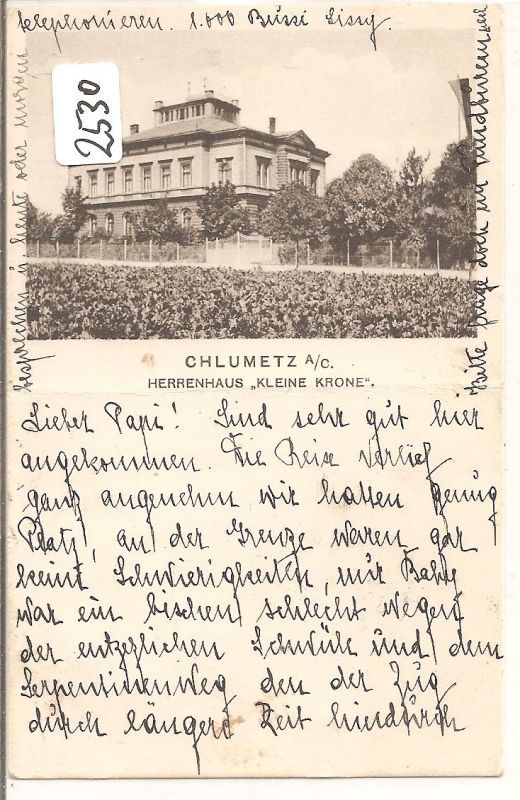 telephonieren. 1.000 Bussi Lissy.
besprechen u. heute oder morgen
Bitte frage doch im Fundbureau
2530
CHLUMETZ A/C.
HERRENHAUS „KLEINE KRONE“.
Lieber Papi! Sind sehr gut hier
angekommen. Die Reise verlief
ganz angenehm, wir hatten genug
Platz, an der Grenze waren gar
keine Schwierigkeiten, nur Baby
war ein bischen schlecht wegen
der entzezlichen Schwüle und dem
Serpentinenweg den der Zug
durch längere Zeit hindurch